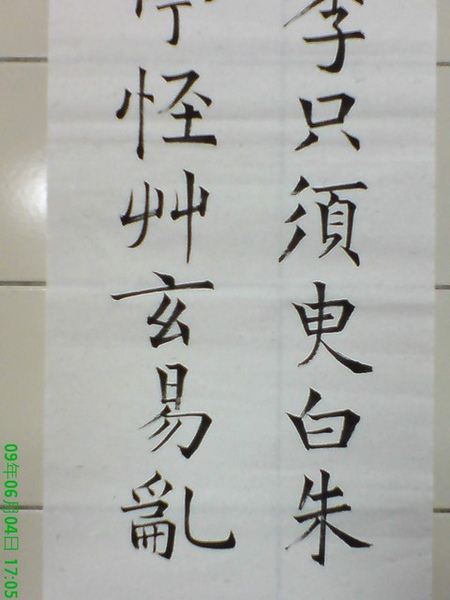 李只須臾白朱
怪艸玄易亂
09年06月04日 17:05